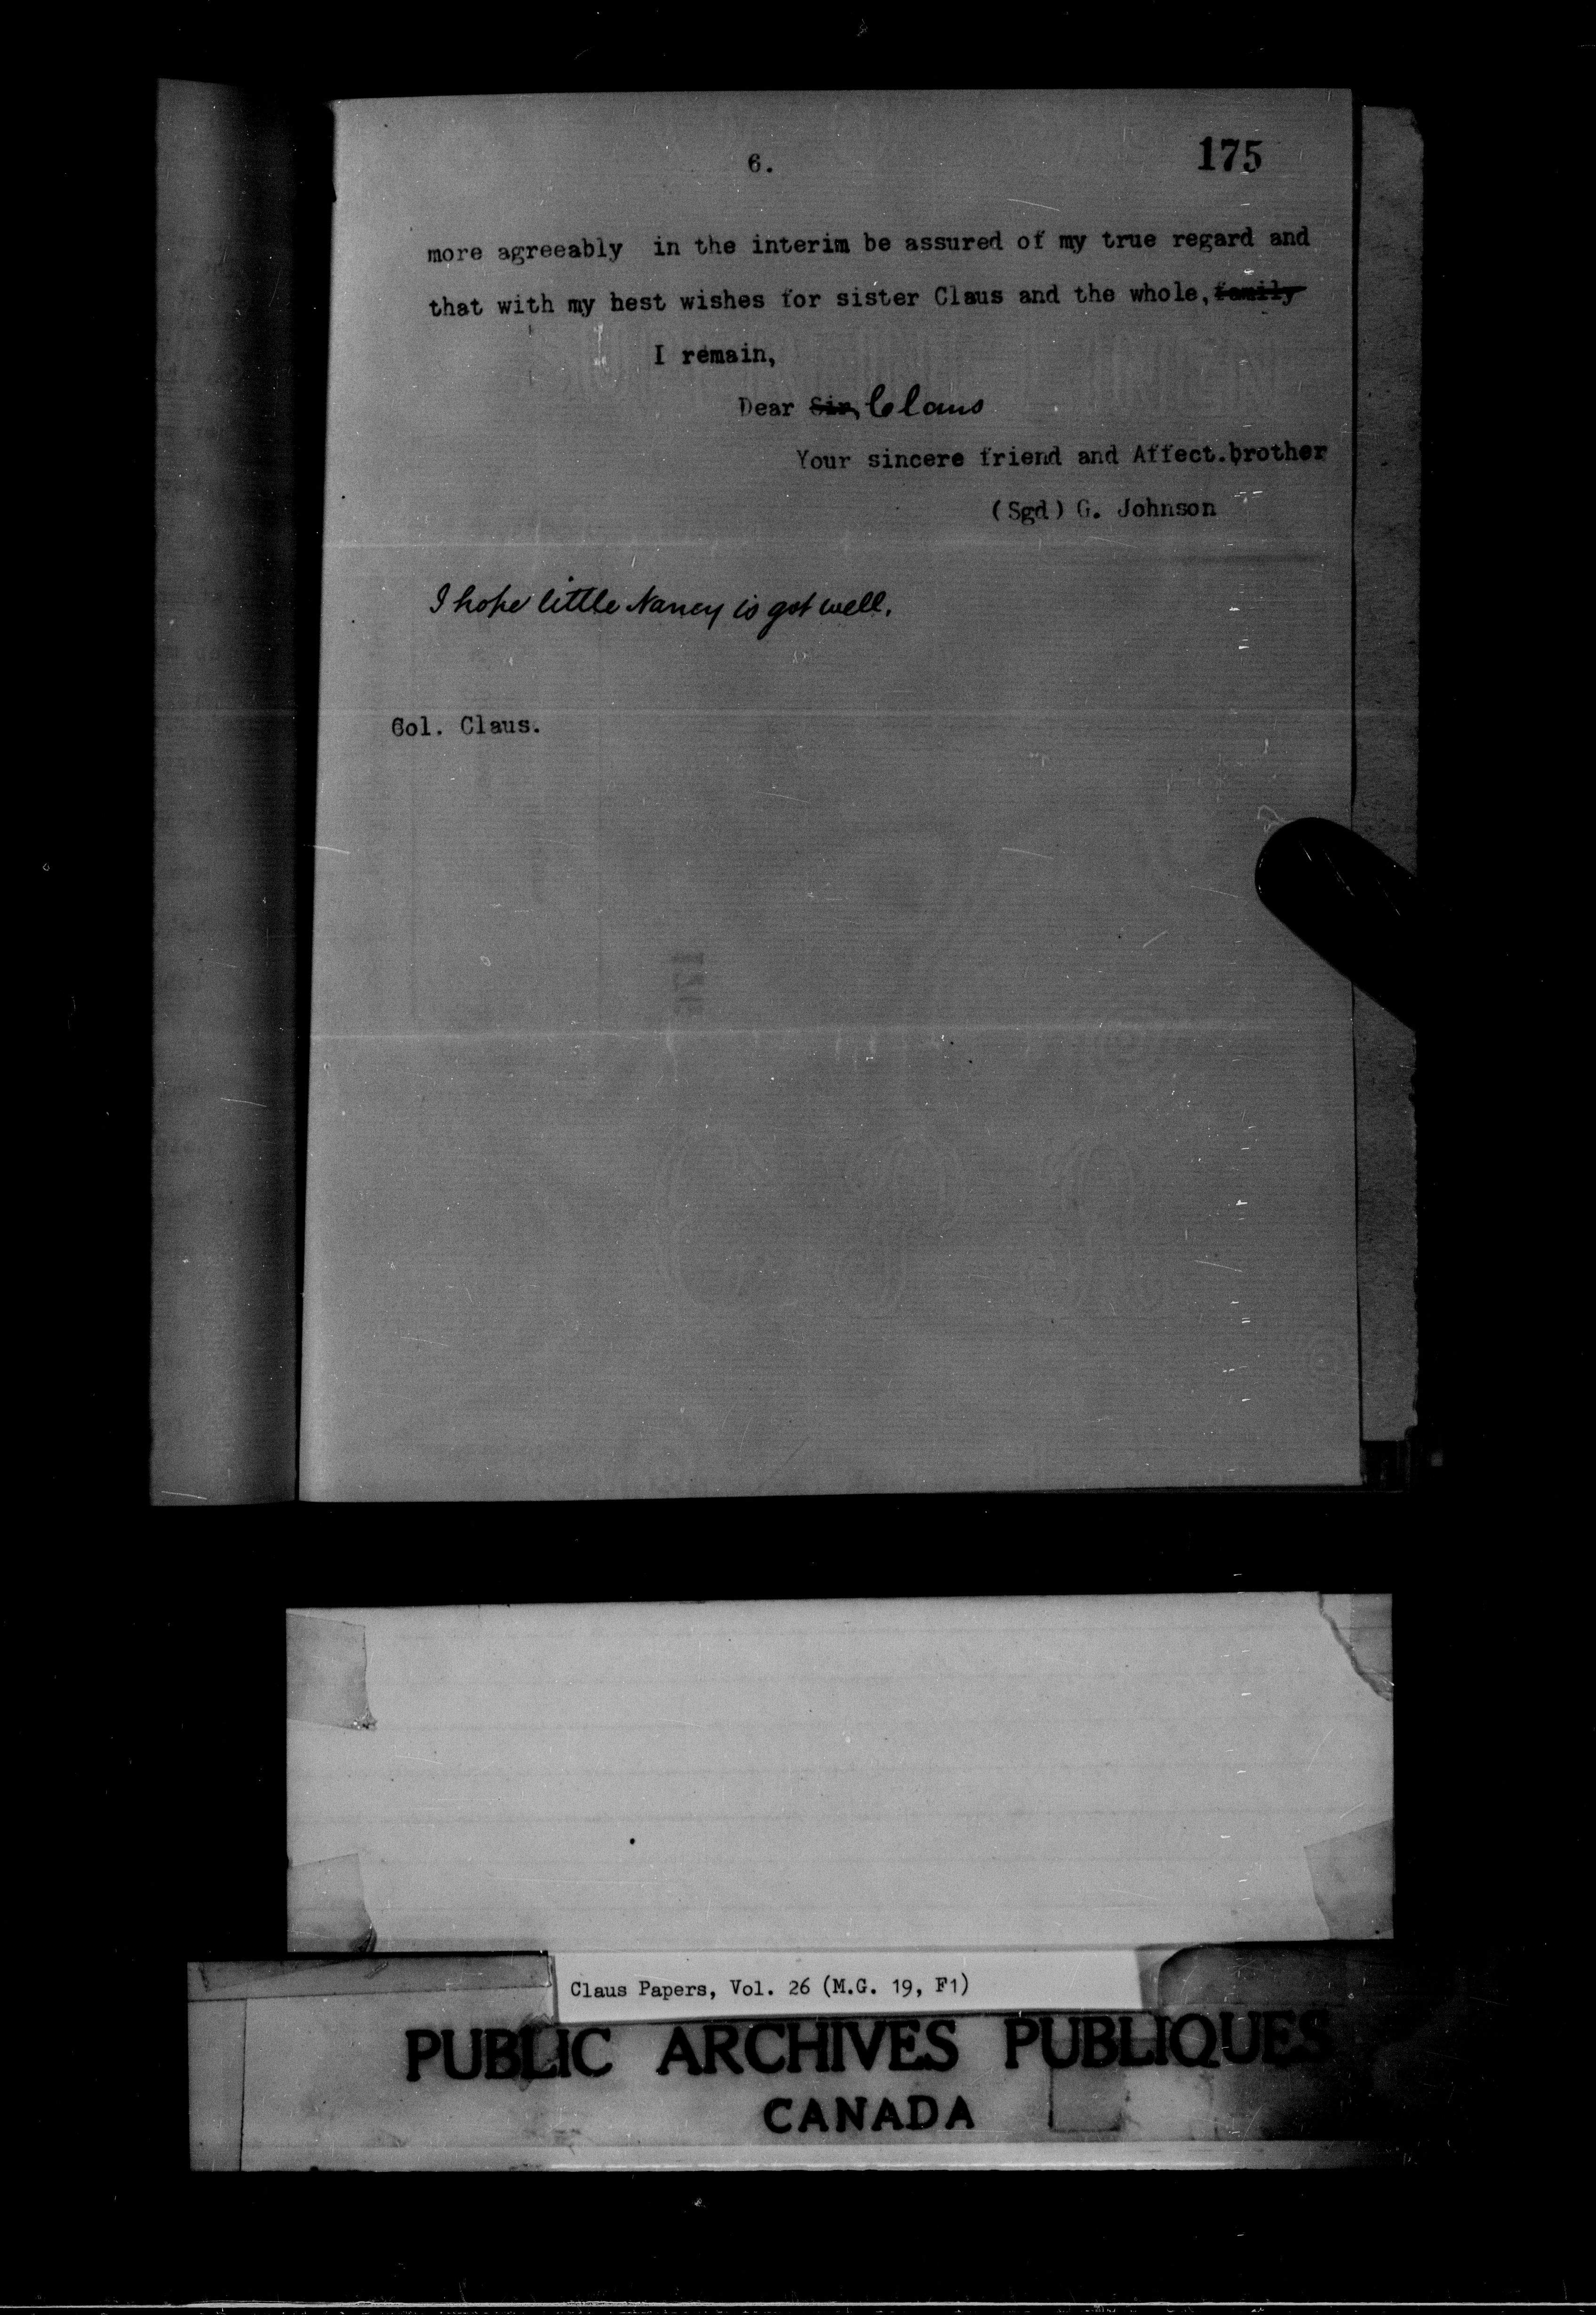 6.
175
more agreeably in the interim be assured of my true regard and
that with my best wishes for sister Claus and the whole, family
I remain,
Dear Sir, Claus
Your sincere friend and Affect.brother
(Sgd) G. Johnson
I hope little Nancy is got well.
Col. Claus.
Claus Papers, Vol. 26 (M.G. 19, F1)
PUBLIC ARCHIVES PUBLIQUES
CANADA